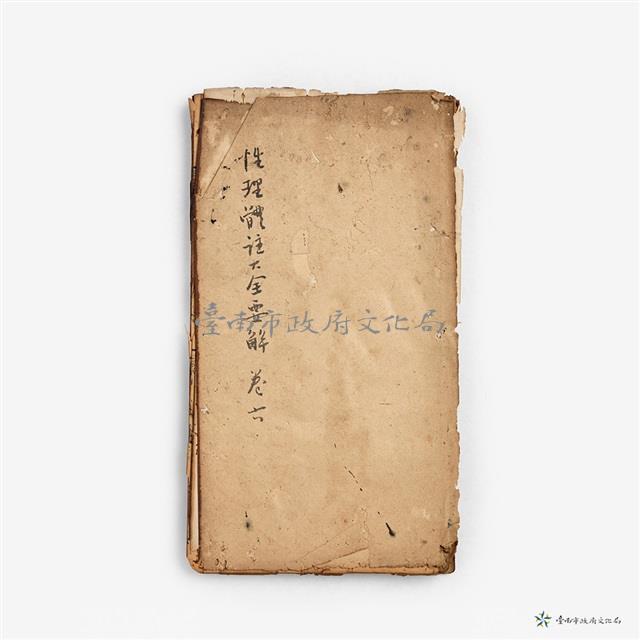 性理體註大全要解 卷六
臺南市政府文化局
臺南市政府文化局